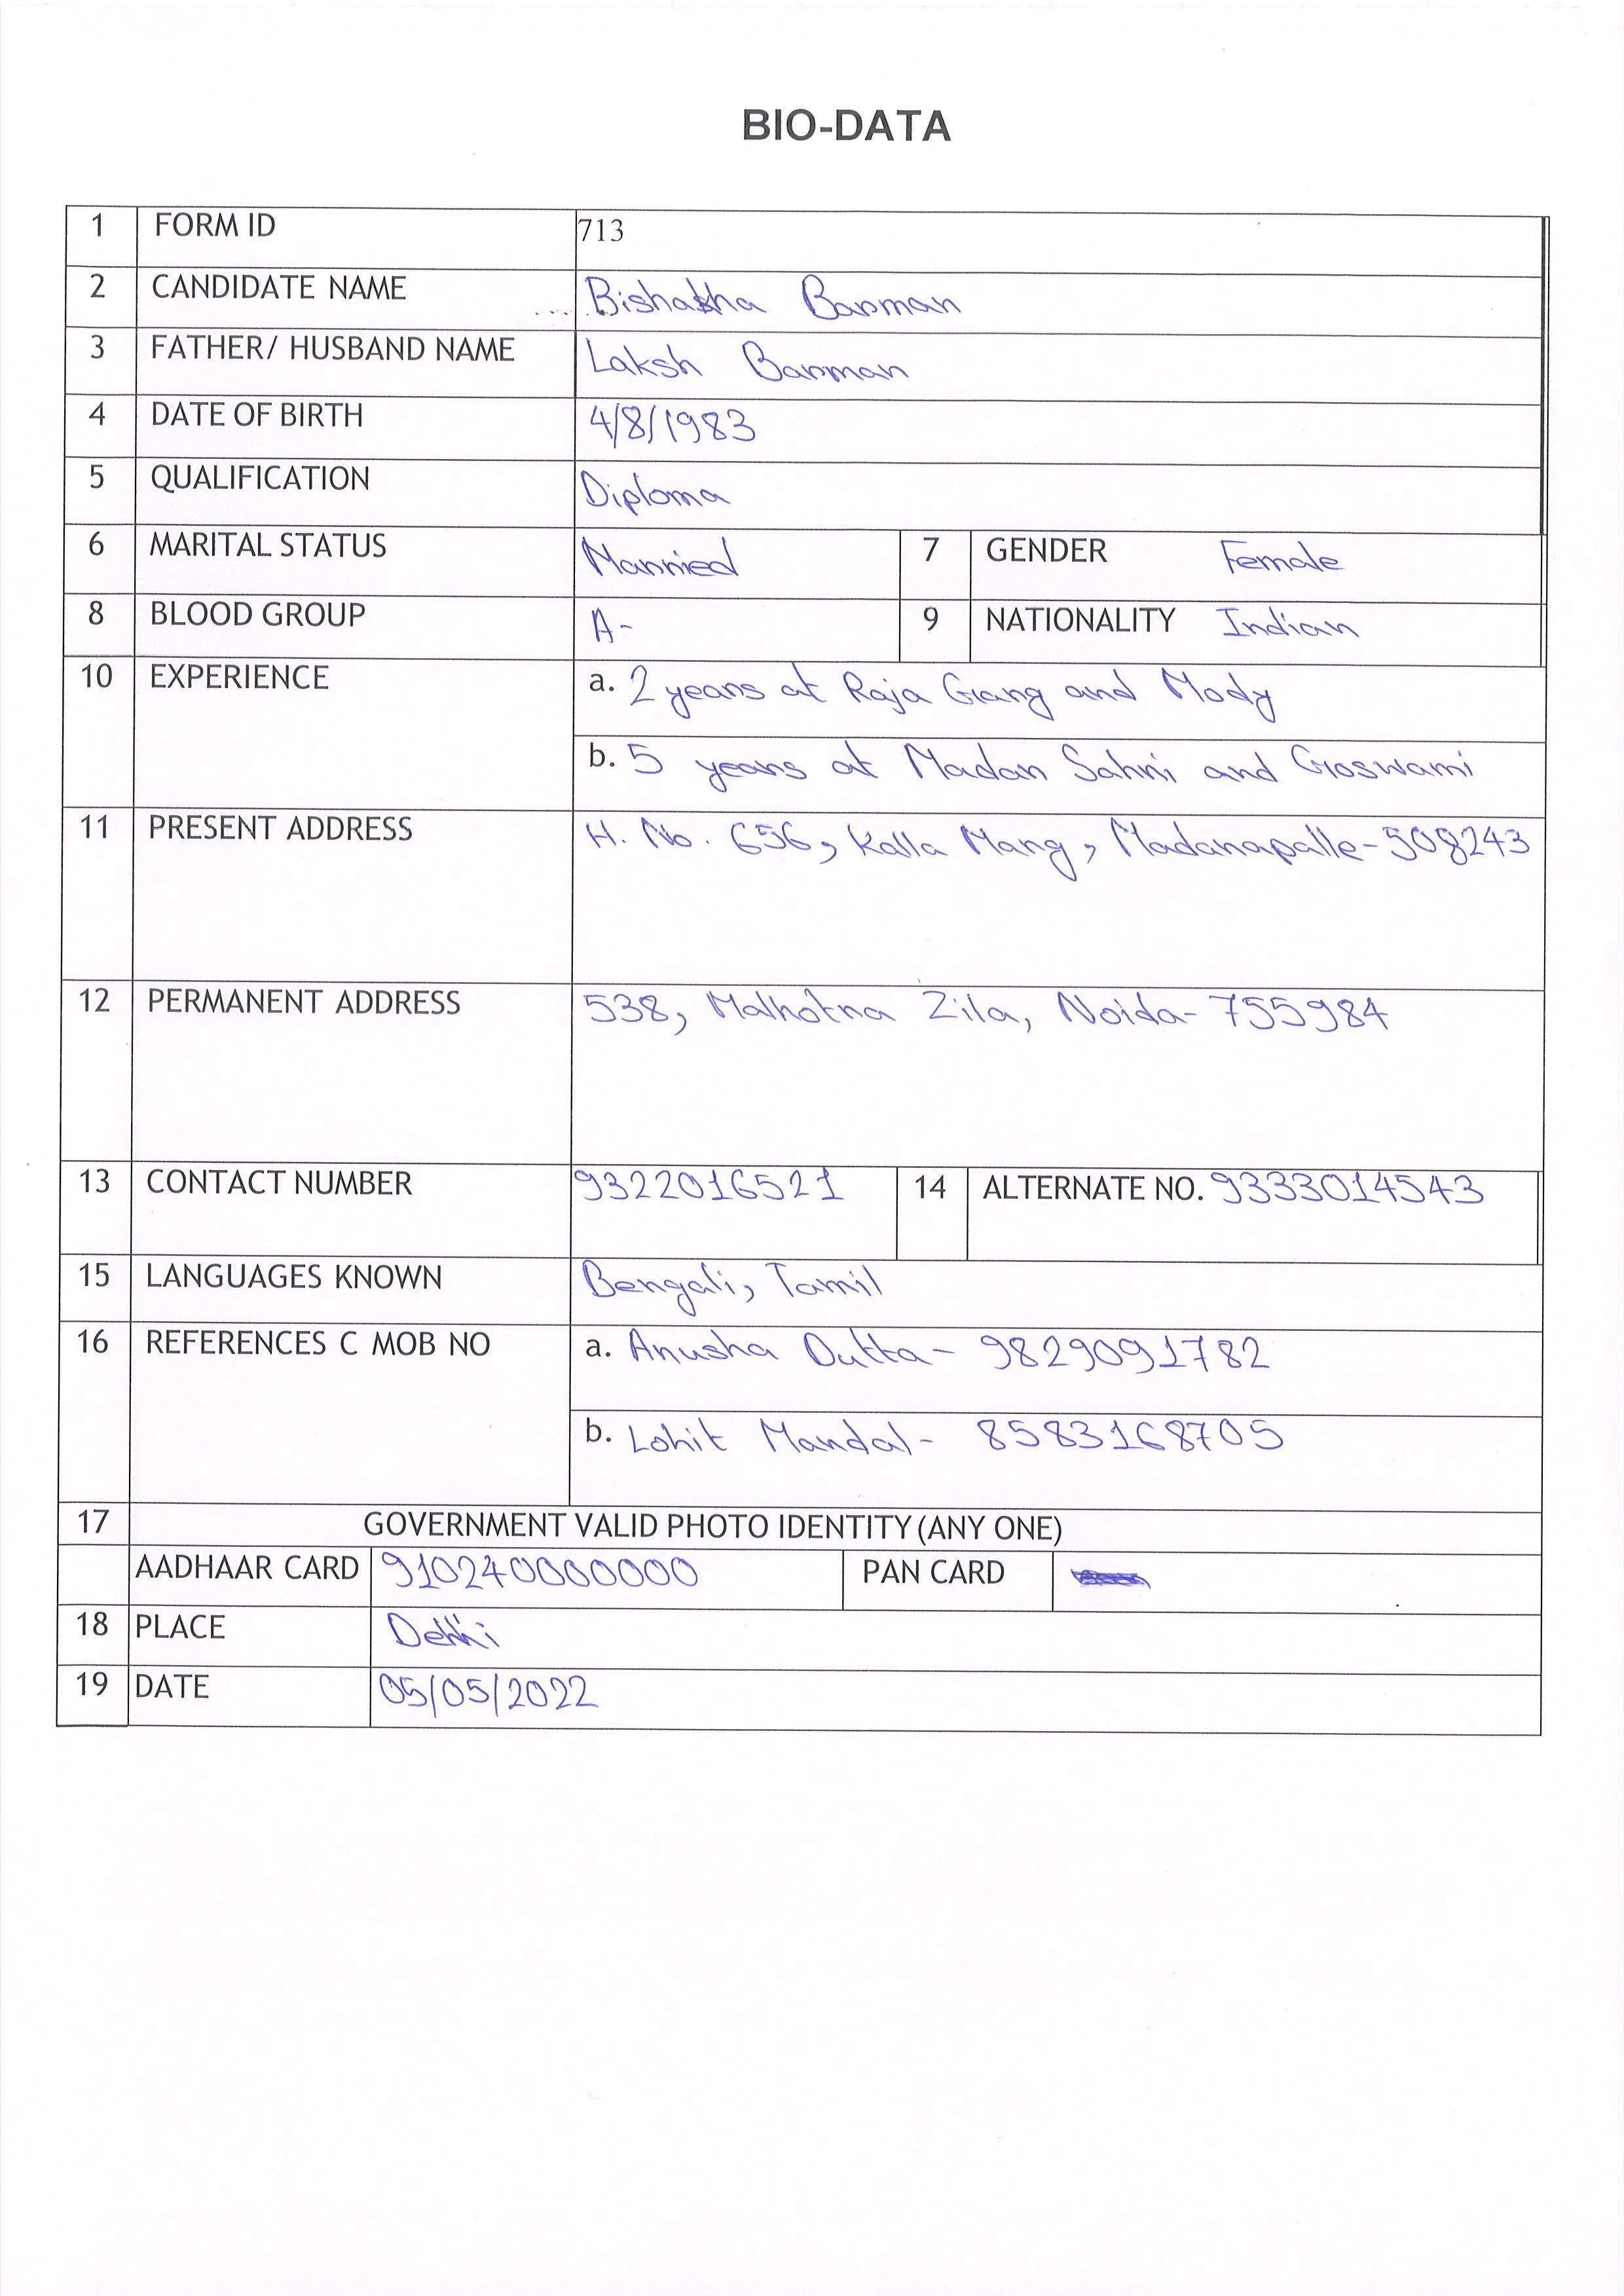 BIO-DATA
1 FORM ID 713
2 CANDIDATE NAME Bishakha Barman
3 FATHER/ HUSBAND NAME Laksh Barman
4 DATE OF BIRTH 4/8/1983
5 QUALIFICATION Diploma
6 MARITAL STATUS Married 7 GENDER Female
8 BLOOD GROUP A- 9 NATIONALITY Indian
10 EXPERIENCE a. 2 years at Raja Garg and Mody
b. 5 years at Madan Sahni and Goswami
11 PRESENT ADDRESS H. No. 656, Kalla Marg, Madanapalle-508243
12 PERMANENT ADDRESS 538, Malhotra Zila, Noida-755984
13 CONTACT NUMBER 9322016521 14 ALTERNATE NO. 9333014543
15 LANGUAGES KNOWN Bengali, Tamil
16 REFERENCES C MOB NO a. Anusha Dutta- 9829091782
b. Lohit Mandal- 8583168705
17 GOVERNMENT VALID PHOTO IDENTITY (ANY ONE)
AADHAAR CARD 910240000000 PAN CARD
18 PLACE Delhi
19 DATE 05/05/2022